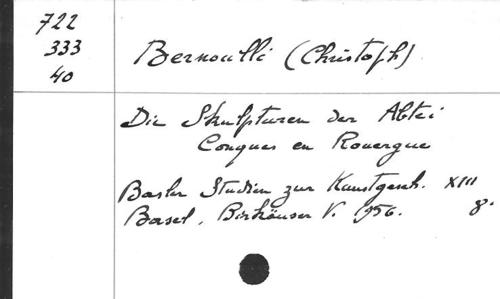 722
333
40
Bernoulli (Christoph)
Die Skulpturen der Abtei
Conques en Rouergue
Basler Studien zur Kunstgesch. XIII
Basel, Birkhäuser V. 1956. 8°